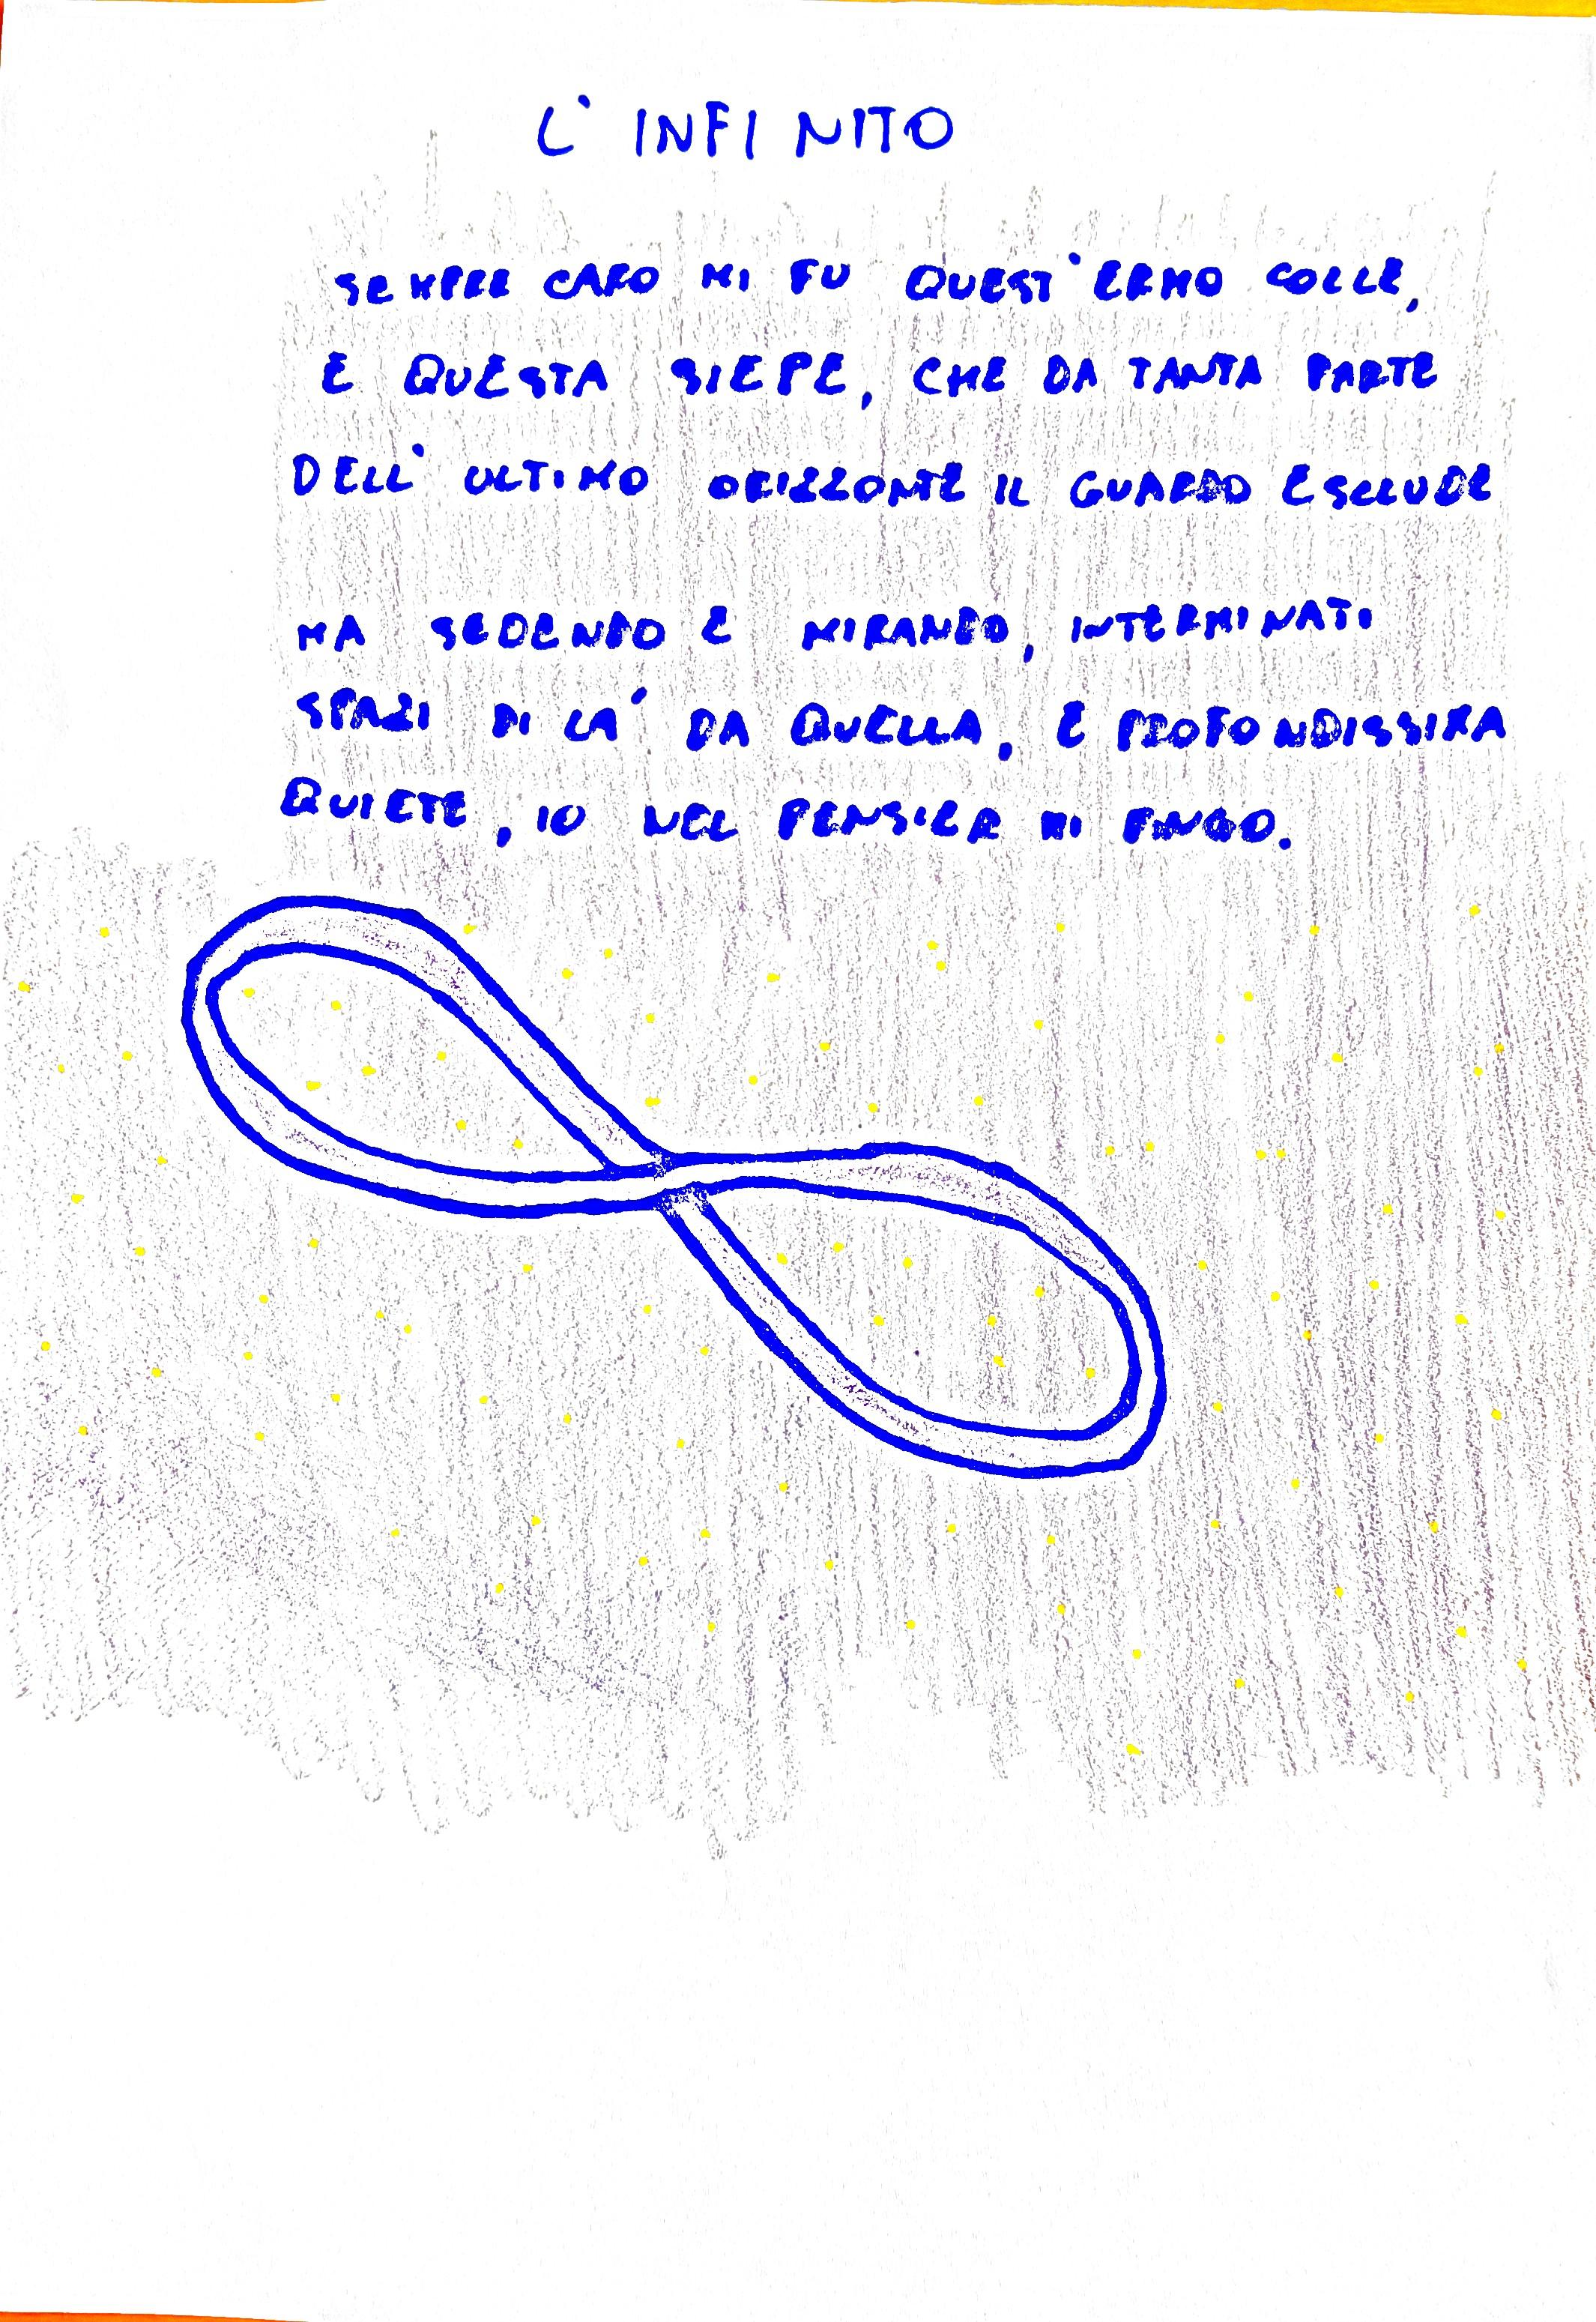 L'INFINITO
SEMPRE CARO MI FU QUEST'ERMO COLLE,
E QUESTA SIEPE, CHE DA TANTA PARTE
DELL'ULTIMO ORIZZONTE IL GUARDO ESCLUDE
MA SEDENDO E MIRANDO, INTERMINATI
SPAZI DI LA' DA QUELLA, E PROFONDISSIMA
QUIETE, IO NEL PENSIER MI FINGO.